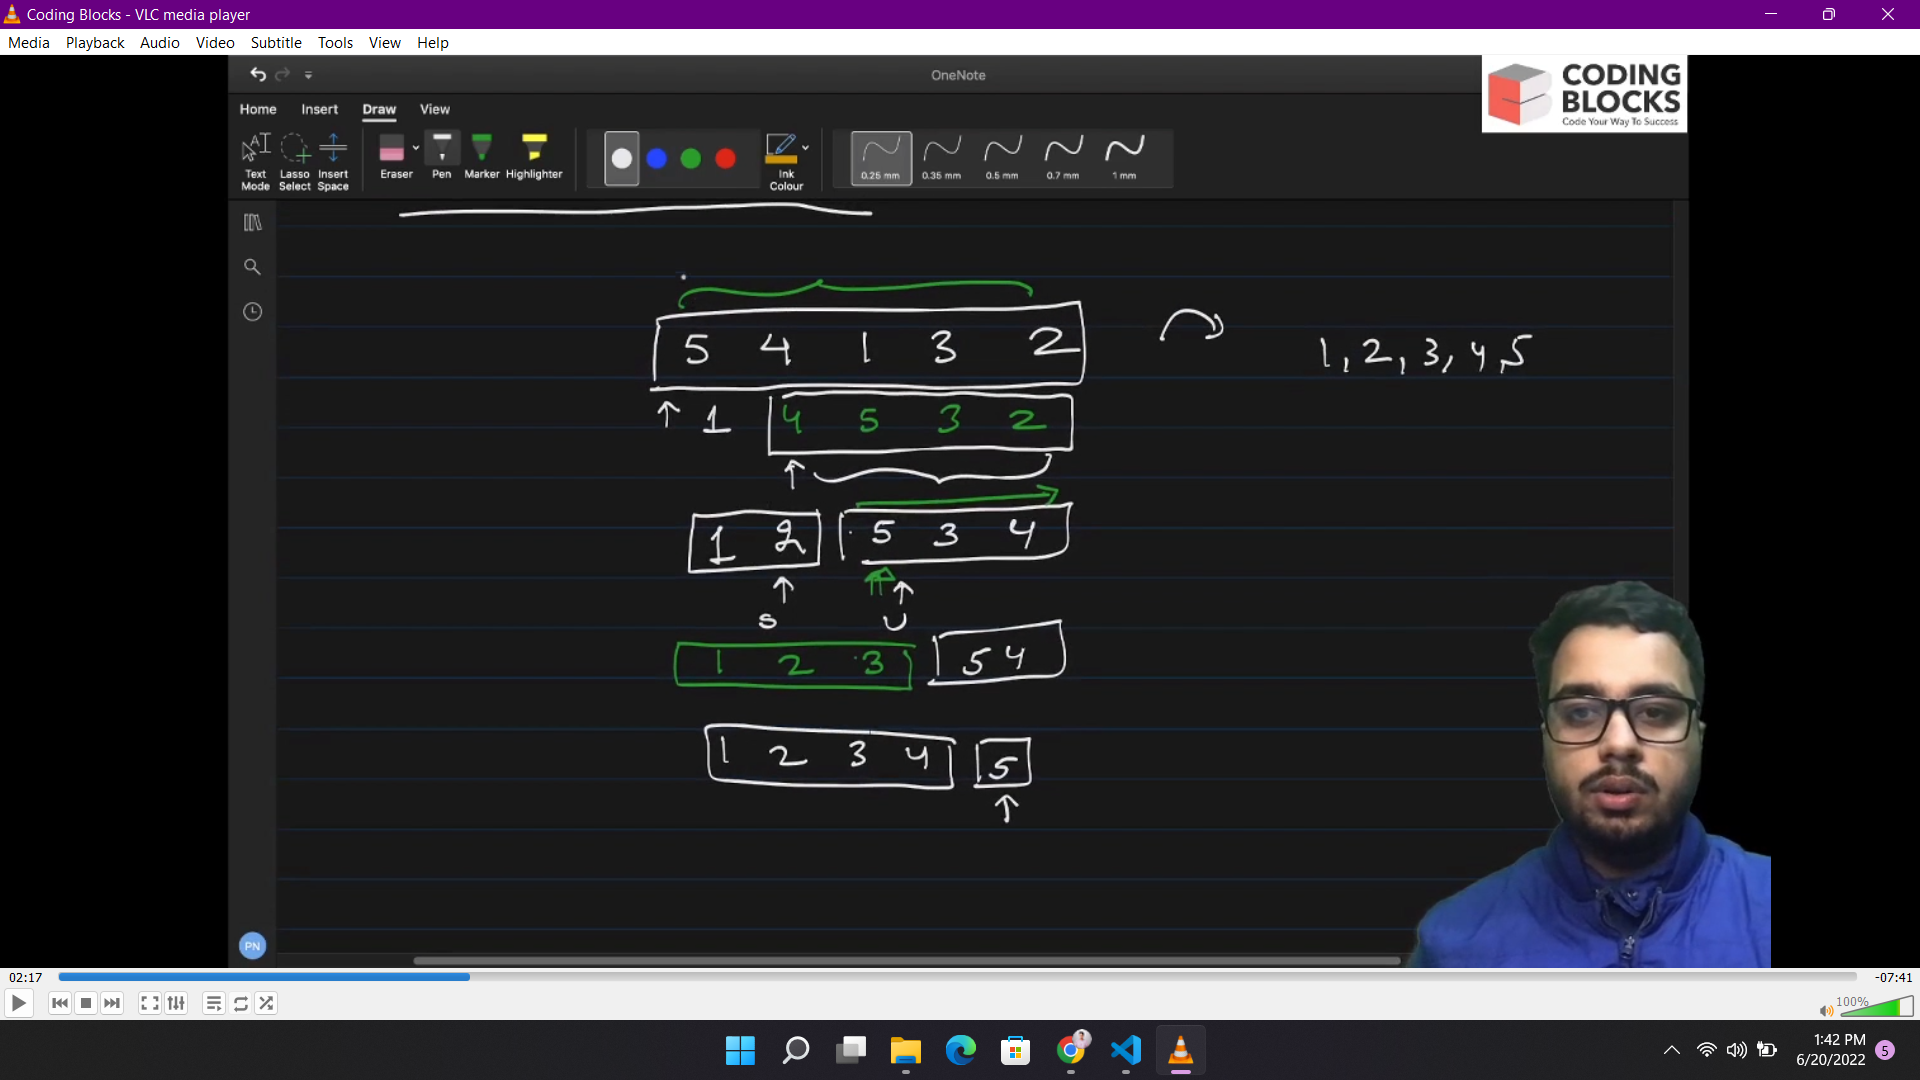 Coding Blocks - VLC media player
Media Playback Audio Video Subtitle Tools View Help
OneNote
CODING
BLOCKS
Code Your Way To Success
Home Insert Draw View
Text Mode
Lasso Select
Insert Space
Eraser
Pen
Marker
Highlighter
Ink Colour
0.25 mm
0.35 mm
0.5 mm
0.7 mm
1 mm
5 4 1 3 2
1, 2, 3, 4, 5
1 4 5 3 2
1 2 5 3 4
S U
1 2 3 5 4
1 2 3 4 5
PN
02:17
-07:41
100%
1:42 PM
6/20/2022
5